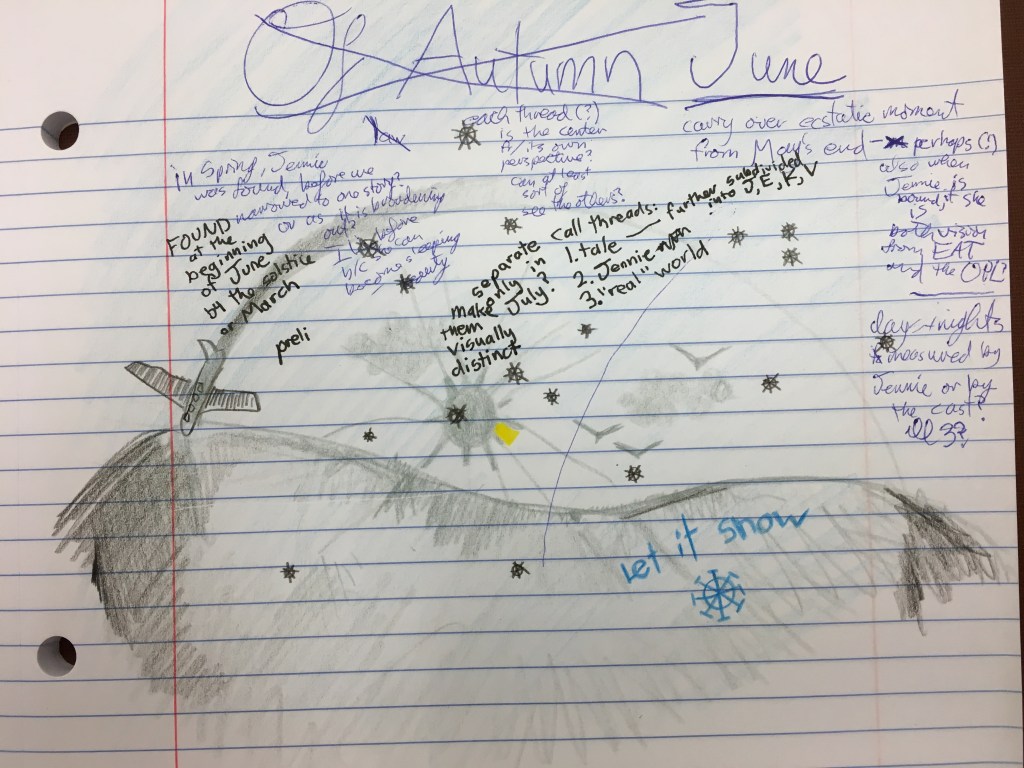 Of Autumn June
each thread(?)
is the center
of its own
perspective?
can at least
sort of
see the others?
carry over ecstatic moment
from May's end
perhaps(?)
also when
Jennie is
is
both vision
from EAT
and the OPL?
in Spring, Jennie
was found before we
narrowed to one story?
or as it is broadening
out?
before
b/c she can
become sleeping
beauty
FOUND
at the
beginning
of June
b4 the solstice
or March
preli
separate
only in
July?
make
them
visually
distinct
call threads:
1. tale — further subdivided
into J, E, K, V
2. Jennie
3. "real" world
day + nights
measured by
Jennie or by
the cast?
all 3?
let it snow